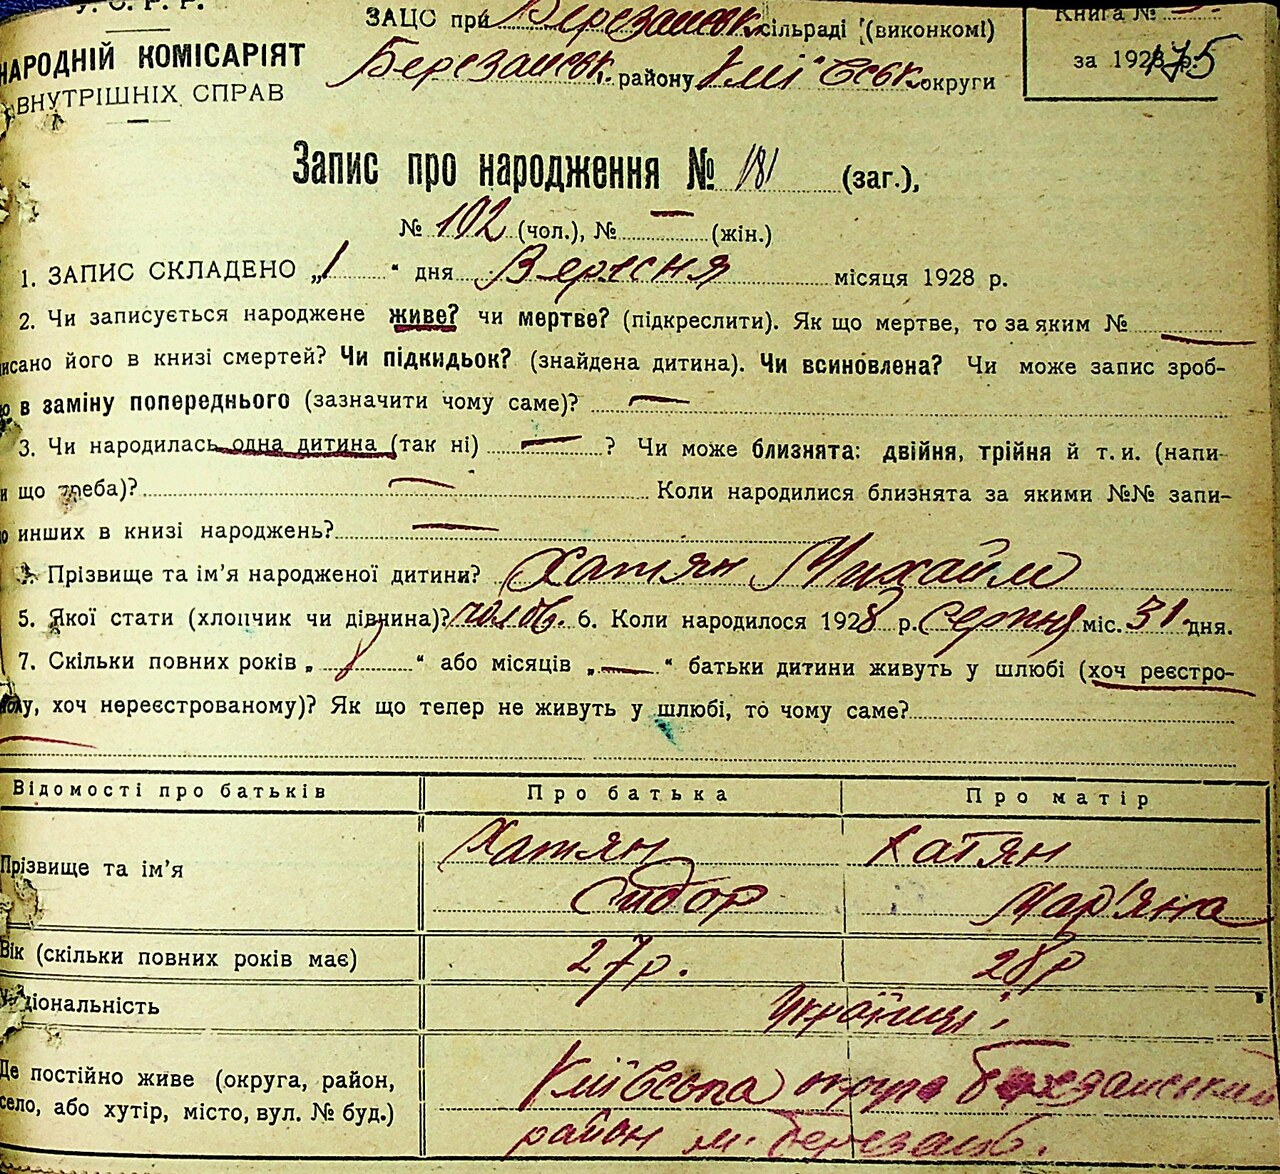 У. С. Р. Р.
НАРОДНІЙ КОМІСАРІЯТ
ВНУТРІШНІХ СПРАВ
ЗАЦС при Березанськ. сільраді (виконкомі)
Березанськ. району Київськ. округи
Книга №
за 1928 р.
175
Запис про народження № 181 (заг.),
№ 102 (чол.), № — (жін.)
1. ЗАПИС СКЛАДЕНО „1“ дня Вересня місяця 1928 р.
2. Чи записується народжене живе? чи мертве? (підкреслити). Як що мертве, то за яким № —
писано його в книзі смертей? Чи підкидьок? (знайдена дитина). Чи всиновлена? Чи може запис зроб-
но в заміну попереднього (зазначити чому саме)? —
3. Чи народилась одна дитина (так ні) — ? Чи може близнята: двійня, трійня й т. и. (напи-
и що треба)? — Коли народилися близнята за якими №№ запи-
но инших в книзі народжень? —
4. Прізвище та ім’я народженої дитини? Хатян Михайло
5. Якої стати (хлопчик чи дівчина)? чолов. 6. Коли народилося 1928 р. серпня міс. 31 дня.
7. Скільки повних років „ “ або місяців „—“ батьки дитини живуть у шлюбі (хоч реєстро-
ному, хоч нереєстрованому)? Як що тепер не живуть у шлюбі, то чому саме?
—
Відомості про батьків Про батька Про матір
Прізвище та ім’я Хатян Сидор Хатян Мар’яна
Вік (скільки повних років має) 27 р. 28 р
Національність Українці
Де постійно живе (округа, район, Київська округа Березанський
село, або хутір, місто, вул. № буд.) район м. Березань.